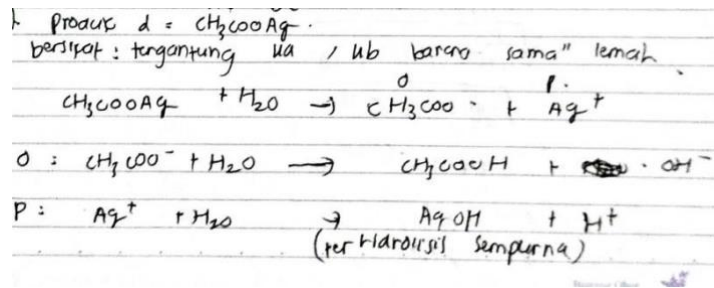 Produk d = CH3COOAg.
bersifat : tergantung ka / kb karena sama" lemah
O P.
CH3COOAg + H2O → CH3COO - + Ag+
O : CH3COO- + H2O → CH3COOH + OH-
P : Ag+ + H2O → AgOH + H+
(ter hidrolisis sempurna)